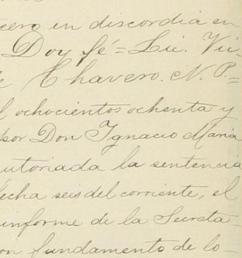 cero en discordia en
Doy fé = Lic. Vic
e Chavero. N. P. =
l ochocientos ochenta y
sor Don Ignacio Maria
utoriada la sentencia
echa seis del corriente, el
informe de la Secreta
on fundamento de lo-